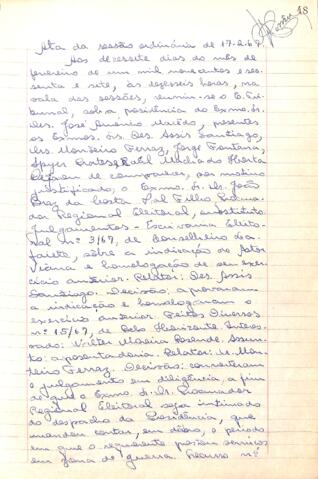 18
Ata da sessão ordinária de 17-2-67
Aos dezessete dias do mês de
fevereiro de um mil novecentos e ses-
senta e sete, às dezesseis horas, na
sala das sessões, reuniu-se o E. Tri-
bunal, sob a presidência do Exmo. Sr.
Des. José Américo Macêdo, presentes
os Exmos. Srs. Des. Assis Santiago,
Drs. Monteiro Ferraz, Jorge Fontana,
de comparecer, por motivo
justificado, o Exmo. Sr. Dr. João
Braz da Costa Val Filho, Procura-
dor Regional Eleitoral, substituto.
Julgamentos - Escrivania Eleito-
ral nº 3/67, de Conselheiro La-
faiete, sobre a indicação de
Viana e homologação de seu exer-
cício anterior. Relator: Des. Assis
Santiago. Decisão: aprovaram
a indicação e homologaram o
exercício anterior. Feitos Diversos
nº 15/67, de Belo Horizonte. Interes-
sado: Moreira Resende. Assun-
to: aposentadoria. Relator: Dr. Mon-
teiro Ferraz. Decisão: converteram
o julgamento em diligência, a fim
de que o Exmo. Sr. Dr. Procurador
Regional Eleitoral seja intimado
do despacho da Presidência, que
mandou contar, em dôbro, o período
em que o requerente prestou serviços
em zona de guerra. Recurso nº